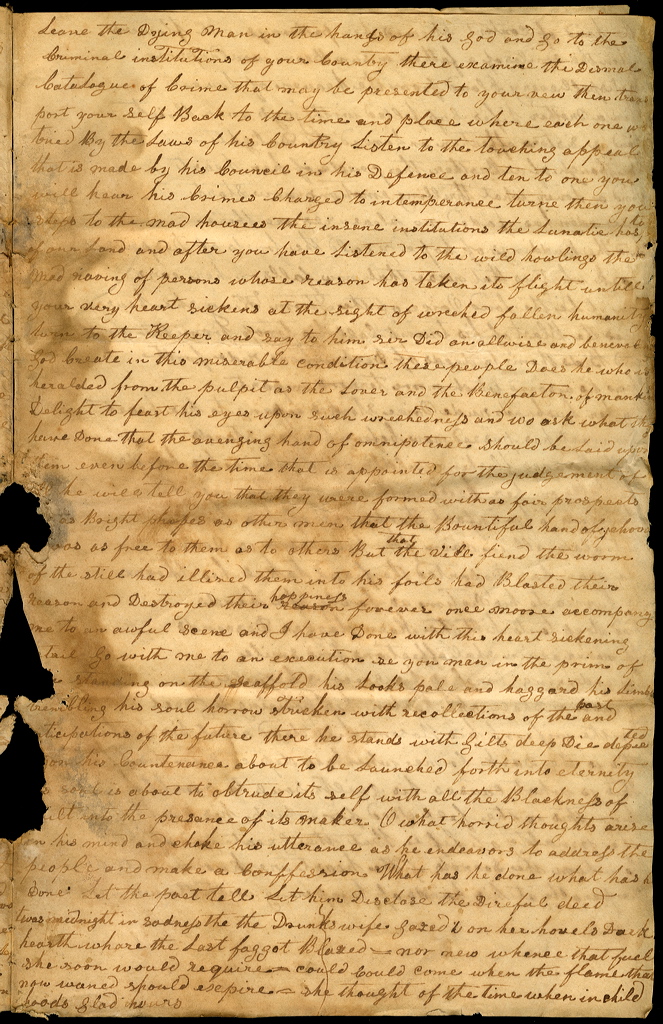 Leave the Dying Man in the hands of his God and Go to the
Criminal institutions of your Country there examine the Dismal
Catalogue of Crime that may be presented to your vew then trans
port your self Back to the time and place where each one w
tried By the Laws of his Country Listen to the touching appeal
that is made by his Council in his Defence and ten to one you
will hear his Crimes Charged to intemperance turne then you
steps to the mad housees the insane institutions the Lunatic hos
of our Land and after you have Listened to the wild howlings the
mad raving of persons whose reason has taken its flight untill
your very heart sickens at the sight of wrecked fallen humanity
turn to the Keeper and say to him sir Did an allwise and benevol
God Create in this miserable condition these people Does he who is
heralded from the pulpit as the Lover and the Benefactor of mank
Delight to feast his eyes upon such wrechedness and wo ask what th
have Done that the avenging hand of omnipotence should be Laid upon
them even before the time that is appointed for the judgement of
he will tell you that they were formed with as fair prospects
as Bright shapes as other men that the Bountiful hand of Jehova
was as free to them as to others But that the Vile fiend the worm
of the still had illised them into his foils had Blasted their
reason and Destroyed their happiness forever once moore accompany
me to an awful scene and I have Done with this heart sickening
tail Go with me to an execution se yon man in the prim of
standing on the scaffold his Looks pale and haggard his Limbs
trembling his soul horrow stricken with recollections of the past and
nticipations of the future there he stands with Gilts deep Die depicted
on his Countenance about to be Launched forth into eternity
soul is about to obtrude its self with all the Blackness of
uilt into the presance of its maker O what horrid thoughts arise
on his mind and choke his utterance as he endeavors to address the
people and make a Conffession What has he done what has h
Done Let the poet tell Let him Disclose the Direful deed
twas midnight in sadness the the Drunks wife Gazed on her hovels Dark
hearth whare the Last faggot Blazed nor new whence that fuel
she soon would require could Could come when the flame that
now waned should expire she thought of the time when in child
hoods Glad hours